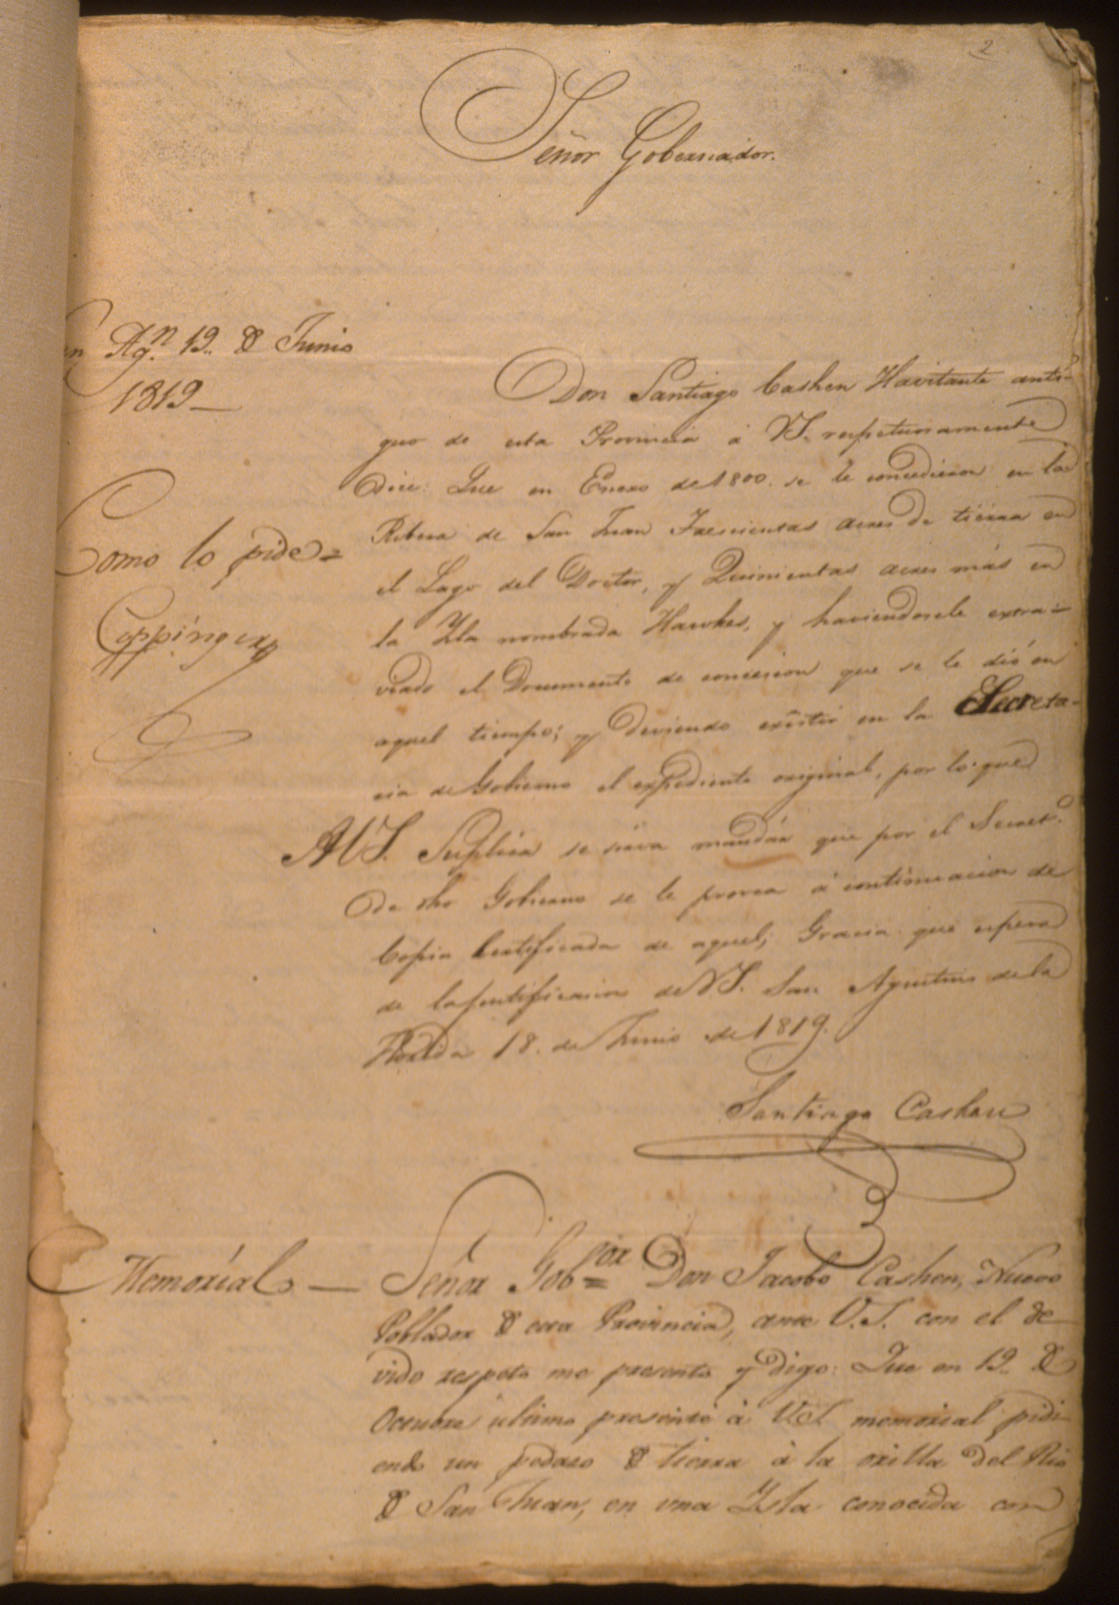 2
Señor Gobernador.
Sn Agn. 19. de Junio
1819_
Como lo pide=
Coppinger
Don Santiago Cashen Havitante anti-
guo de esta Provincia á VS. respetuosamente
Dice: Que en Enero de 1800. se le concedieron en la
Ribera de San Juan Trescientas acres de tierra en
el Lago del Doctor, y Quinientas acres más en
la Ysla nombrada Hawkes, y haviendosele extra-
viado el Documento de concesion que se le dió en
aquel tiempo; y deviendo existir en la Secreta-
ria de Gobierno el expediente original, por lo que
A VS. Suplica se sirva mandár que por el Secreto.
de dho Gobierno se le provea á continuacion de
Copia Certificada de aquel; Gracia que espera
de la justificacion de VS. San Agustin de la
Florida 18. de Junio de 1819.
Santiago Cashen
Memorial — Señor Gobor Don Jacobo Cashen, Nuevo
Poblador de esta Provincia, ante V.S. con el de-
vido respeto me presento y digo: Que en 19. de
Octubre ultimo presenté á VS memorial pidi-
endo un pedaso de tierra á la orilla del Rio
de San Juan, en una Ysla conocida con